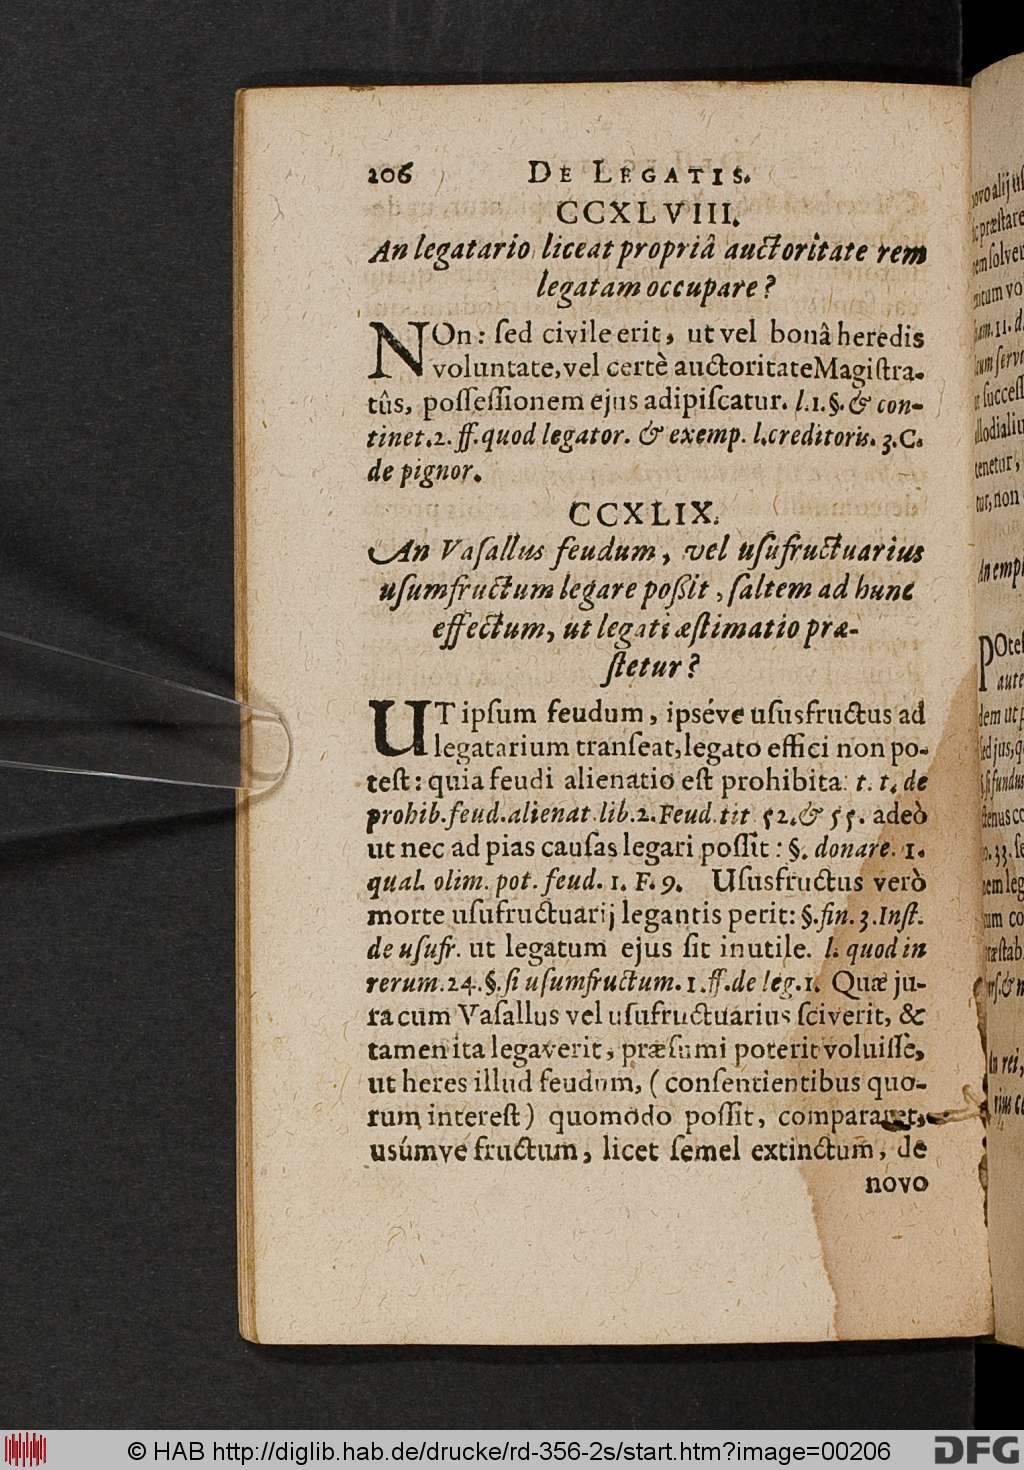 206 DE LEGATIS.
CCXLVIII.
An legatario liceat propriâ auctoritate rem
legatam occupare?
NOn: ſed civile erit, ut vel bonâ heredis
voluntate, vel certè auctoritate Magiſtra-
tûs, poſſeſſionem ejus adipiſcatur. l. 1. §. & con-
tinet. 2. ff. quod legator. & exemp. l. creditoris. 3. C.
de pignor.
CCXLIX.
An Vaſallus feudum, vel uſufructuarius
uſumfructum legare poßit, ſaltem ad hunc
effectum, ut legati æſtimatio præ-
ſtetur?
UT ipſum feudum, ipséve uſusfructus ad
legatarium tranſeat, legato effici non po-
teſt: quia feudi alienatio eſt prohibita. t. t. de
prohib. feud. alienat. lib. 2. Feud. tit 52. & 55. adeò
ut nec ad pias cauſas legari poſſit: §. donare. 1.
qual. olim. pot. feud. 1. F. 9. Uſusfructus verò
morte uſufructuarij legantis perit: §. fin. 3. Inſt.
de uſufr. ut legatum ejus ſit inutile. l. quod in
rerum. 24. §. ſi uſumfructum. 1. ff. de leg. 1. Quæ ju-
ra cum Vaſallus vel uſufructuarius ſciverit, &
tamen ita legaverit, præſumi poterit voluiſſe,
ut heres illud feudum, (conſentientibus quo-
rum intereſt) quomodo poſſit, compararet,
usúmve fructum, licet ſemel extinctum, de
novo
© HAB http://diglib.hab.de/drucke/rd-356-2s/start.htm?image=00206
DFG